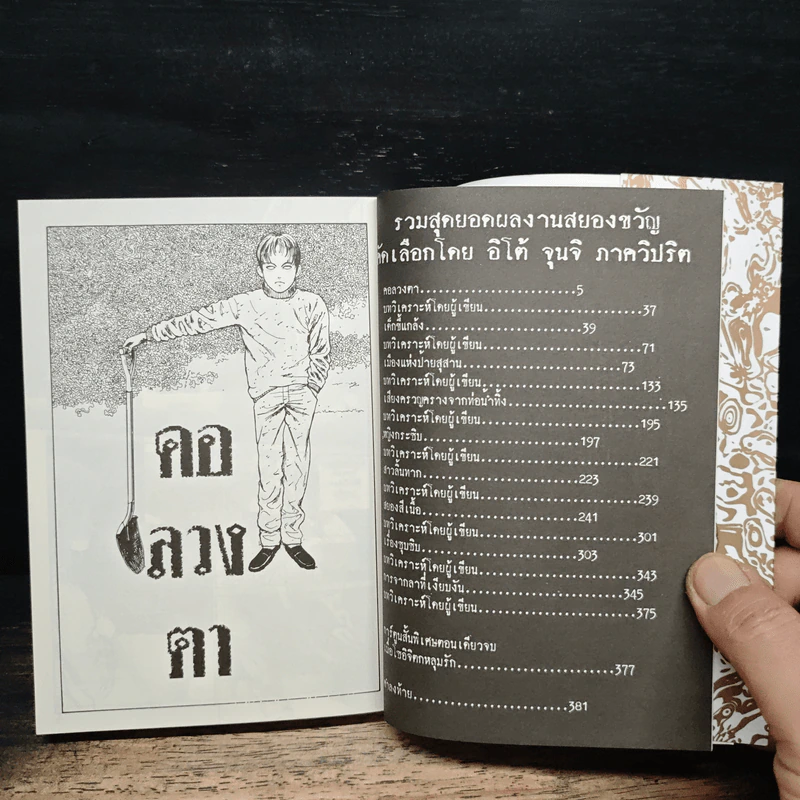 คอ
ลวง
ตา
รวมสุดยอดผลงานสยองขวัญ
คัดเลือกโดย อิโต้ จุนจิ ภาควิปริต
คอลวงตา........................5
บทวิเคราะห์โดยผู้เขียน........................37
เด็กขี้แกล้ง........................39
บทวิเคราะห์โดยผู้เขียน........................71
เมืองแห่งป้ายสุสาน........................73
บทวิเคราะห์โดยผู้เขียน........................133
เสียงครวญครางจากท่อน้ำทิ้ง........................135
บทวิเคราะห์โดยผู้เขียน........................195
หญิงกระซิบ........................197
บทวิเคราะห์โดยผู้เขียน........................221
สาวลิ้นทาก........................223
บทวิเคราะห์โดยผู้เขียน........................239
สยองสีเนื้อ........................241
บทวิเคราะห์โดยผู้เขียน........................301
เรื่องซุบซิบ........................303
บทวิเคราะห์โดยผู้เขียน........................343
การจากลาที่เงียบงัน........................345
บทวิเคราะห์โดยผู้เขียน........................375
การ์ตูนสั้นพิเศษตอนเดียวจบ
โซอิจิตกหลุมรัก........................377
คำลงท้าย........................381